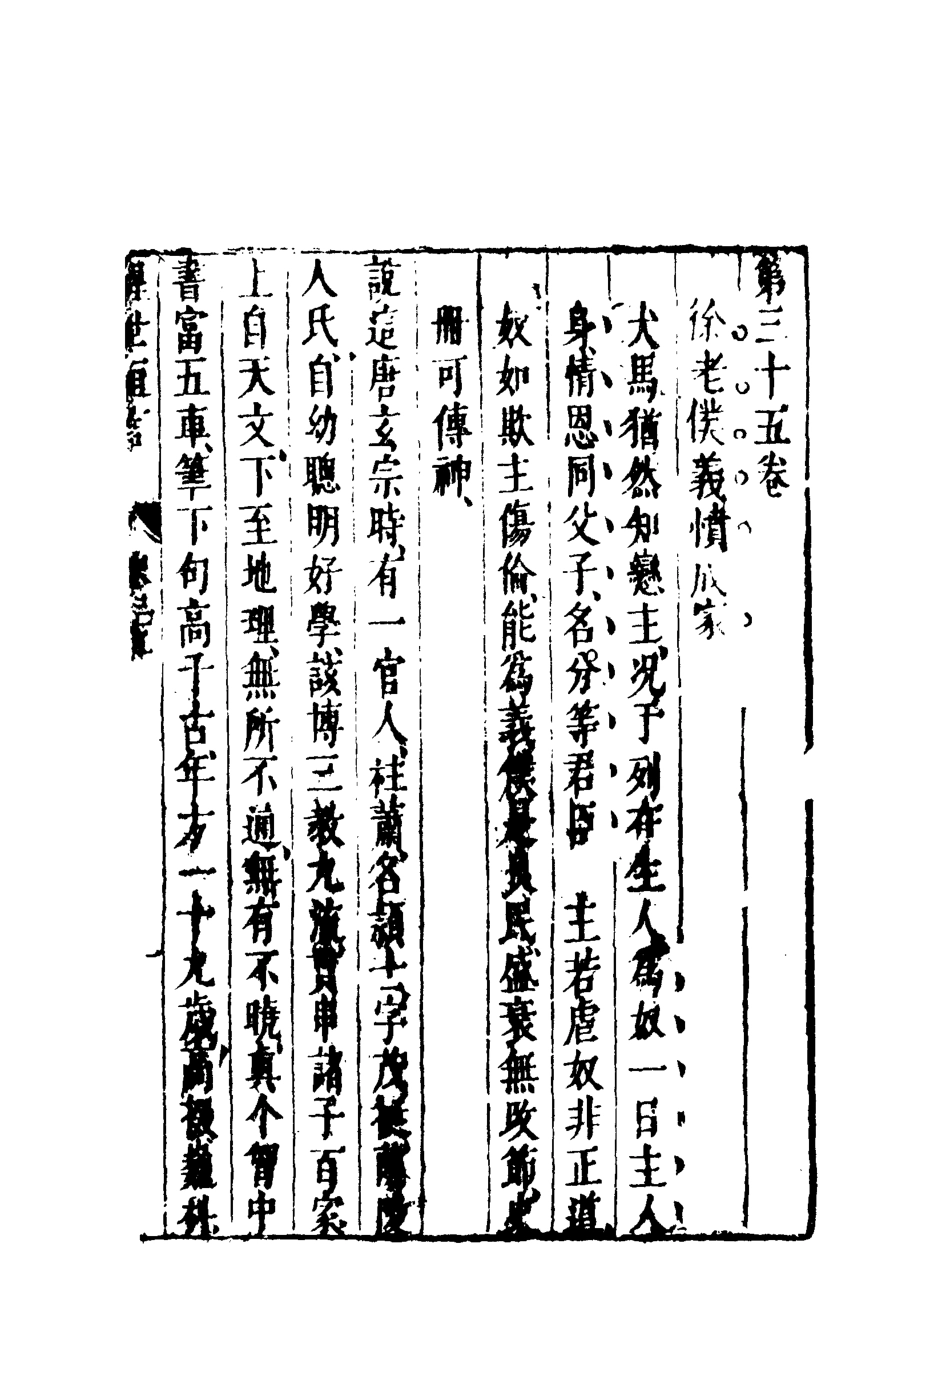 第三十五卷
徐老僕義憤成家
犬馬猶然知戀主、况于列在生人、爲奴一日主人
身、情恩同父子、名分等君臣　主若虐奴非正道、
奴如欺主傷倫、能爲義僕是良民、盛衰無改節、史
冊可傳神、
說這唐玄宗時、有一官人、姓蕭、名頴士、字茂挺、蘭陵
人氏、自幼聰明好學、該博三教九流、貫串諸子百家、
上自天文、下至地理、無所不通、無有不曉、真个胷中
書富五車、筆下句高千古、年方一十九歲、高掇巍科、
醒世恒言